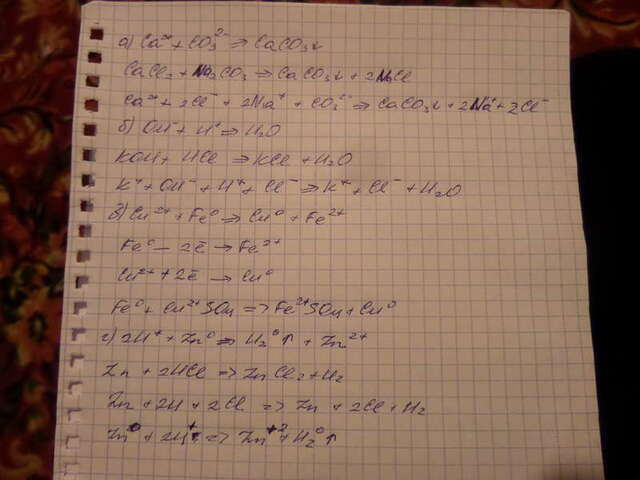 а) Ca²⁺ + CO₃²⁻ ⇒ CaCO₃↓
CaCl₂ + Na₂CO₃ ⇒ CaCO₃↓ + 2NaCl
Ca²⁺ + 2Cl⁻ + 2Na⁺ + CO₃²⁻ ⇒ CaCO₃↓ + 2Na⁺ + 2Cl⁻
б) OH⁻ + H⁺ ⇒ H₂O
KOH + HCl ⇒ KCl + H₂O
K⁺ + OH⁻ + H⁺ + Cl⁻ ⇒ K⁺ + Cl⁻ + H₂O
в) Cu²⁺ + Fe⁰ ⇒ Cu⁰ + Fe²⁺
Fe⁰ − 2ē → Fe²⁺
Cu²⁺ + 2ē → Cu⁰
Fe⁰ + Cu²⁺SO₄ => Fe²⁺SO₄ + Cu⁰
г) 2H⁺ + Zn⁰ ⇒ H₂⁰↑ + Zn²⁺
Zn + 2HCl => ZnCl₂ + H₂
Zn + 2H + 2Cl => Zn + 2Cl + H₂
Zn⁰ + 2H⁺ => Zn⁺² + H₂⁰↑